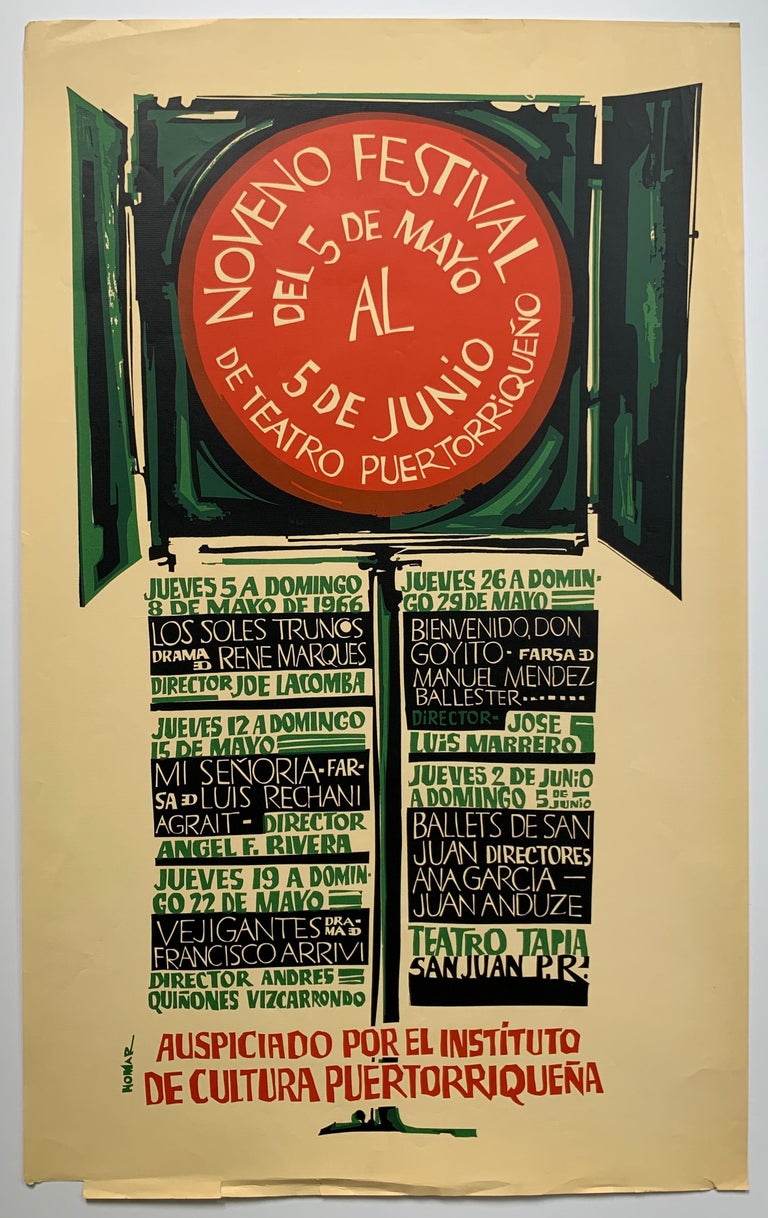 NOVENO FESTIVAL
DE TEATRO PUERTORRIQUEÑO
DEL 5 DE MAYO
AL
5 DE JUNIO
JUEVES 5 A DOMINGO
8 DE MAYO DE 1966
LOS SOLES TRUNCOS
DRAMA DE RENE MARQUES
DIRECTOR JOE LACOMBA
JUEVES 12 A DOMINGO
15 DE MAYO
MI SEÑORIA - FAR-
SA DE LUIS RECHANI
AGRAIT - DIRECTOR
ANGEL F. RIVERA
JUEVES 19 A DOMIN-
GO 22 DE MAYO
VEJIGANTES DRA-
MA DE
FRANCISCO ARRIVI
DIRECTOR ANDRES
QUIÑONES VIZCARRONDO
JUEVES 26 A DOMIN-
GO 29 DE MAYO
BIENVENIDO, DON
GOYITO - FARSA DE
MANUEL MENDEZ
BALLESTER
DIRECTOR - JOSE
LUIS MARRERO
JUEVES 2 DE JUNIO
A DOMINGO 5 DE JUNIO
BALLETS DE SAN
JUAN DIRECTORES
ANA GARCIA —
JUAN ANDUZE
TEATRO TAPIA
SAN JUAN P.R.
HOMAR
AUSPICIADO POR EL INSTITUTO
DE CULTURA PUERTORRIQUEÑA